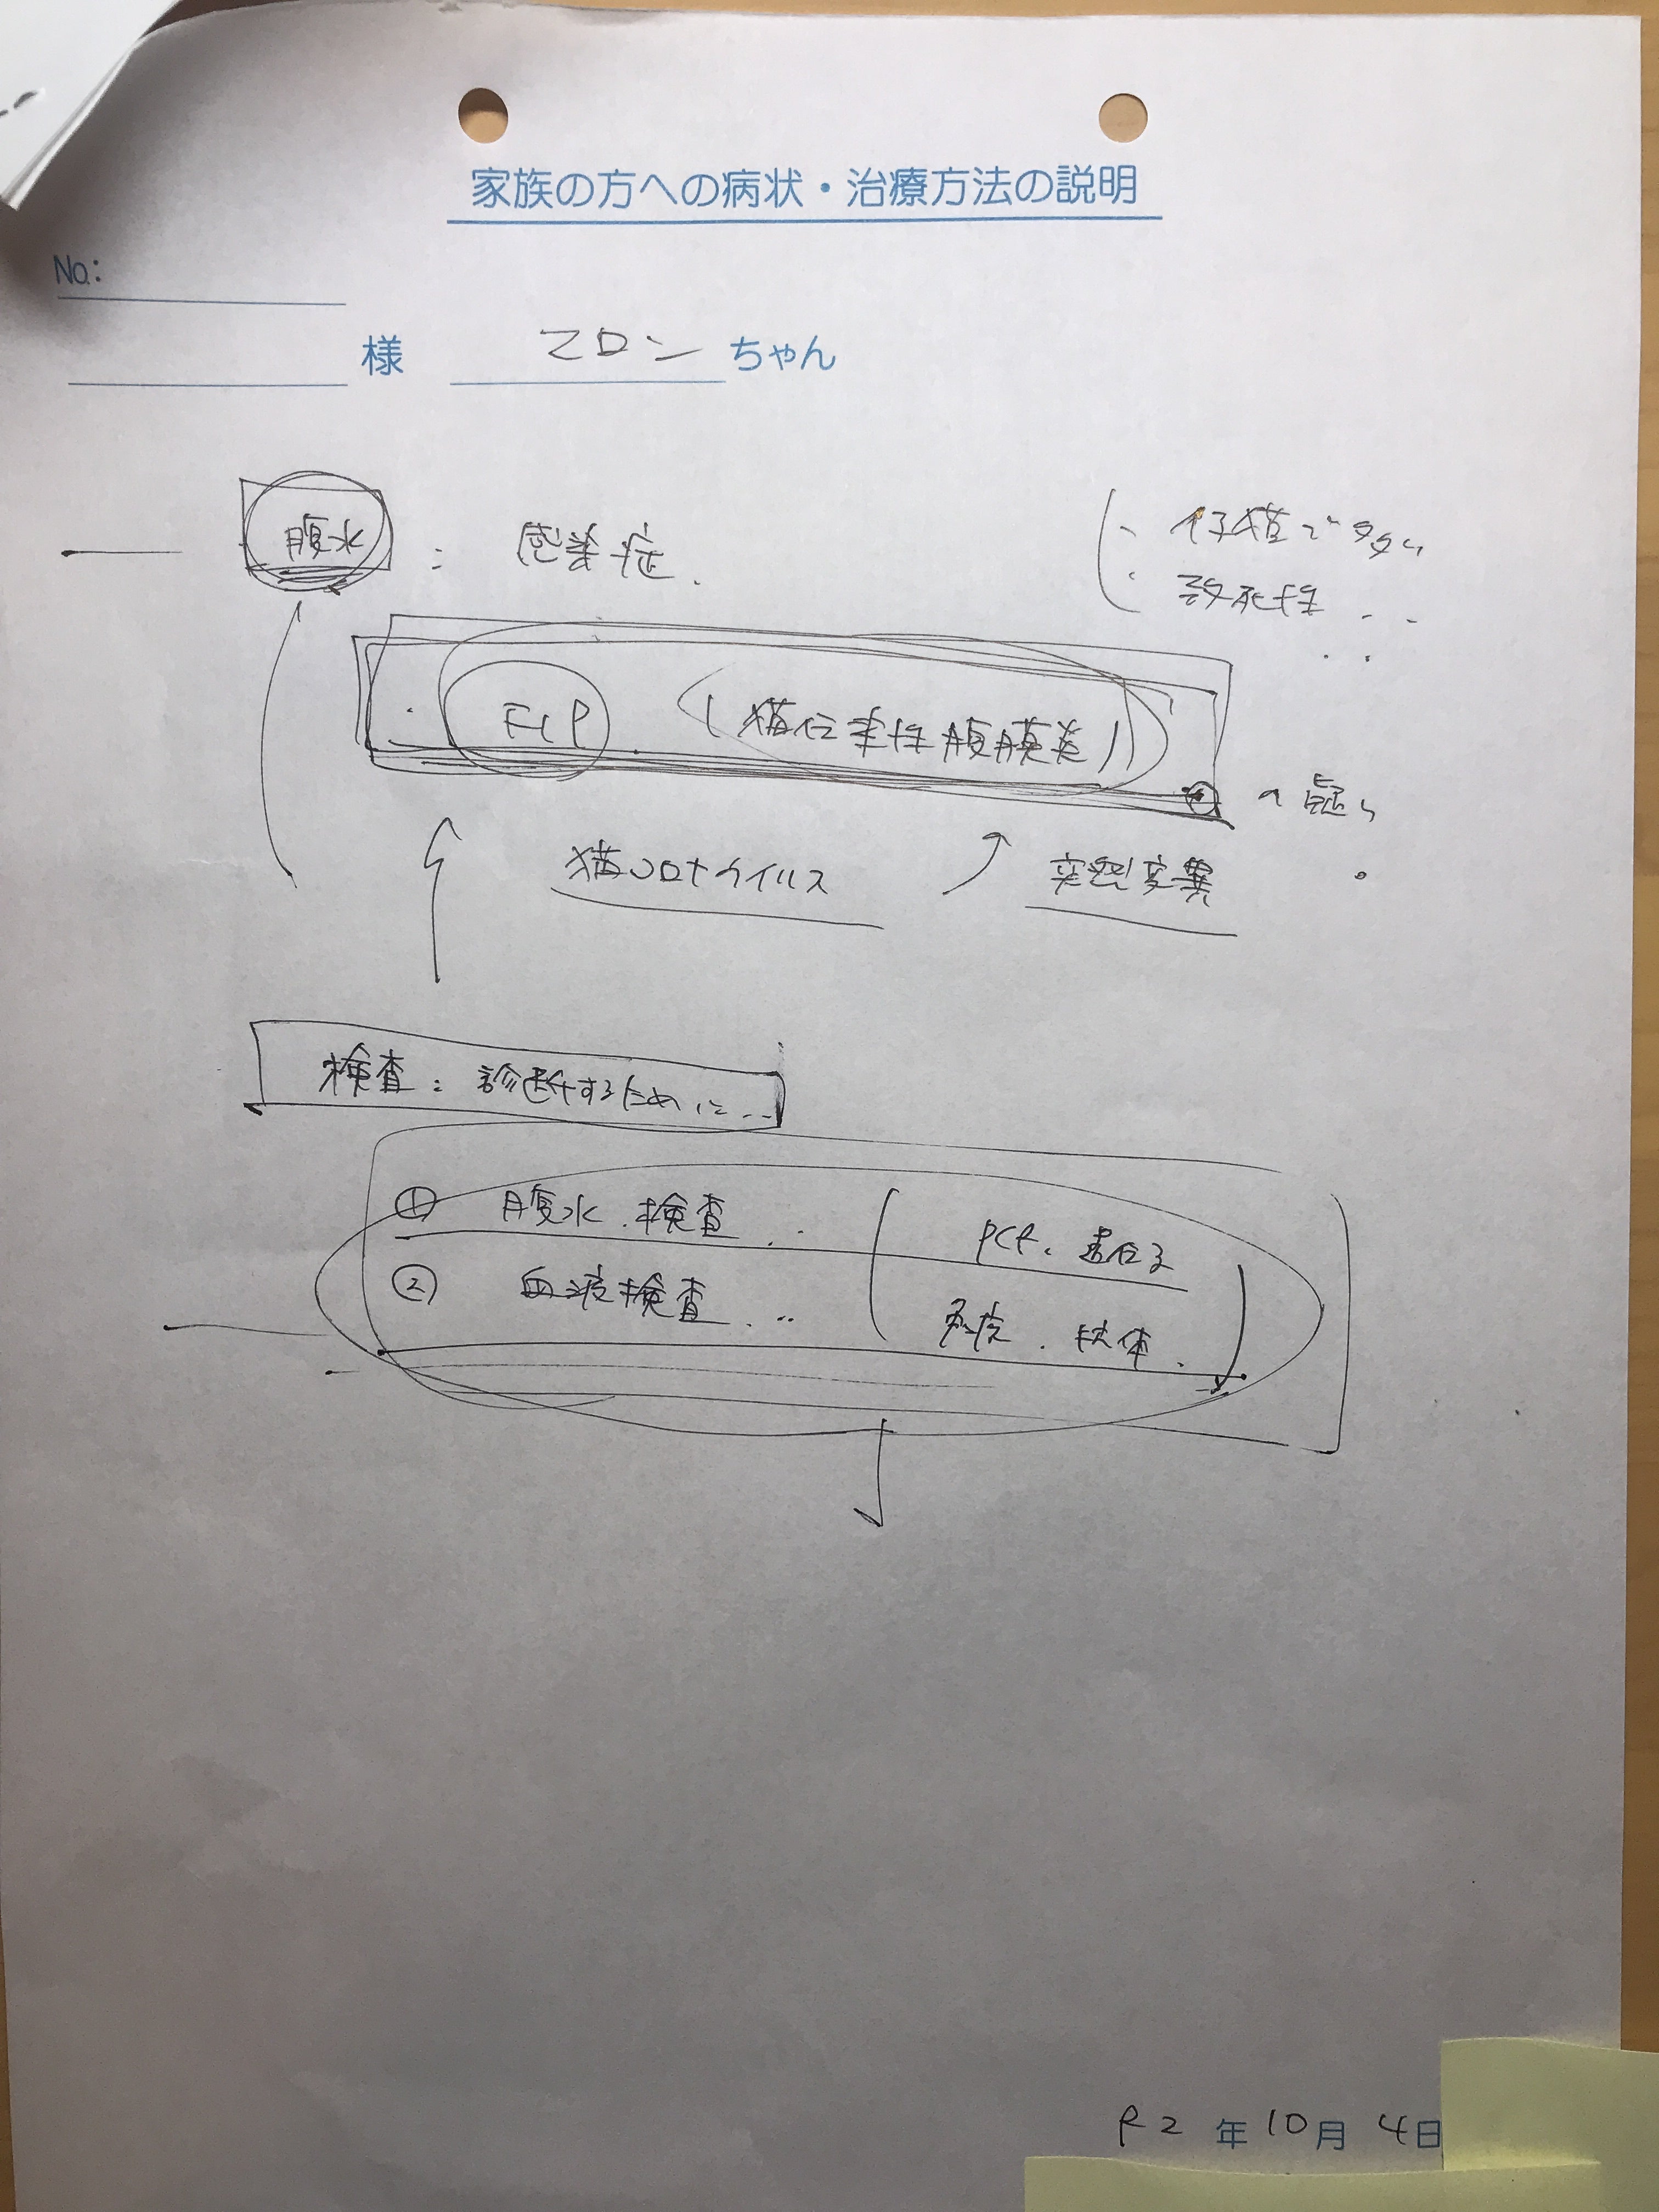 家族の方への病状・治療方法の説明
No.:
様 マロン ちゃん
腹水 : 感染症.
・仔猫で多い
・致死性...
・FIP (猫伝染性腹膜炎)
の疑い。
猫コロナウイルス 突然変異
検査: 診断するために...
① 腹水検査...
② 血液検査...
PCR、遺伝子
免疫、抗体.
R2年10月4日